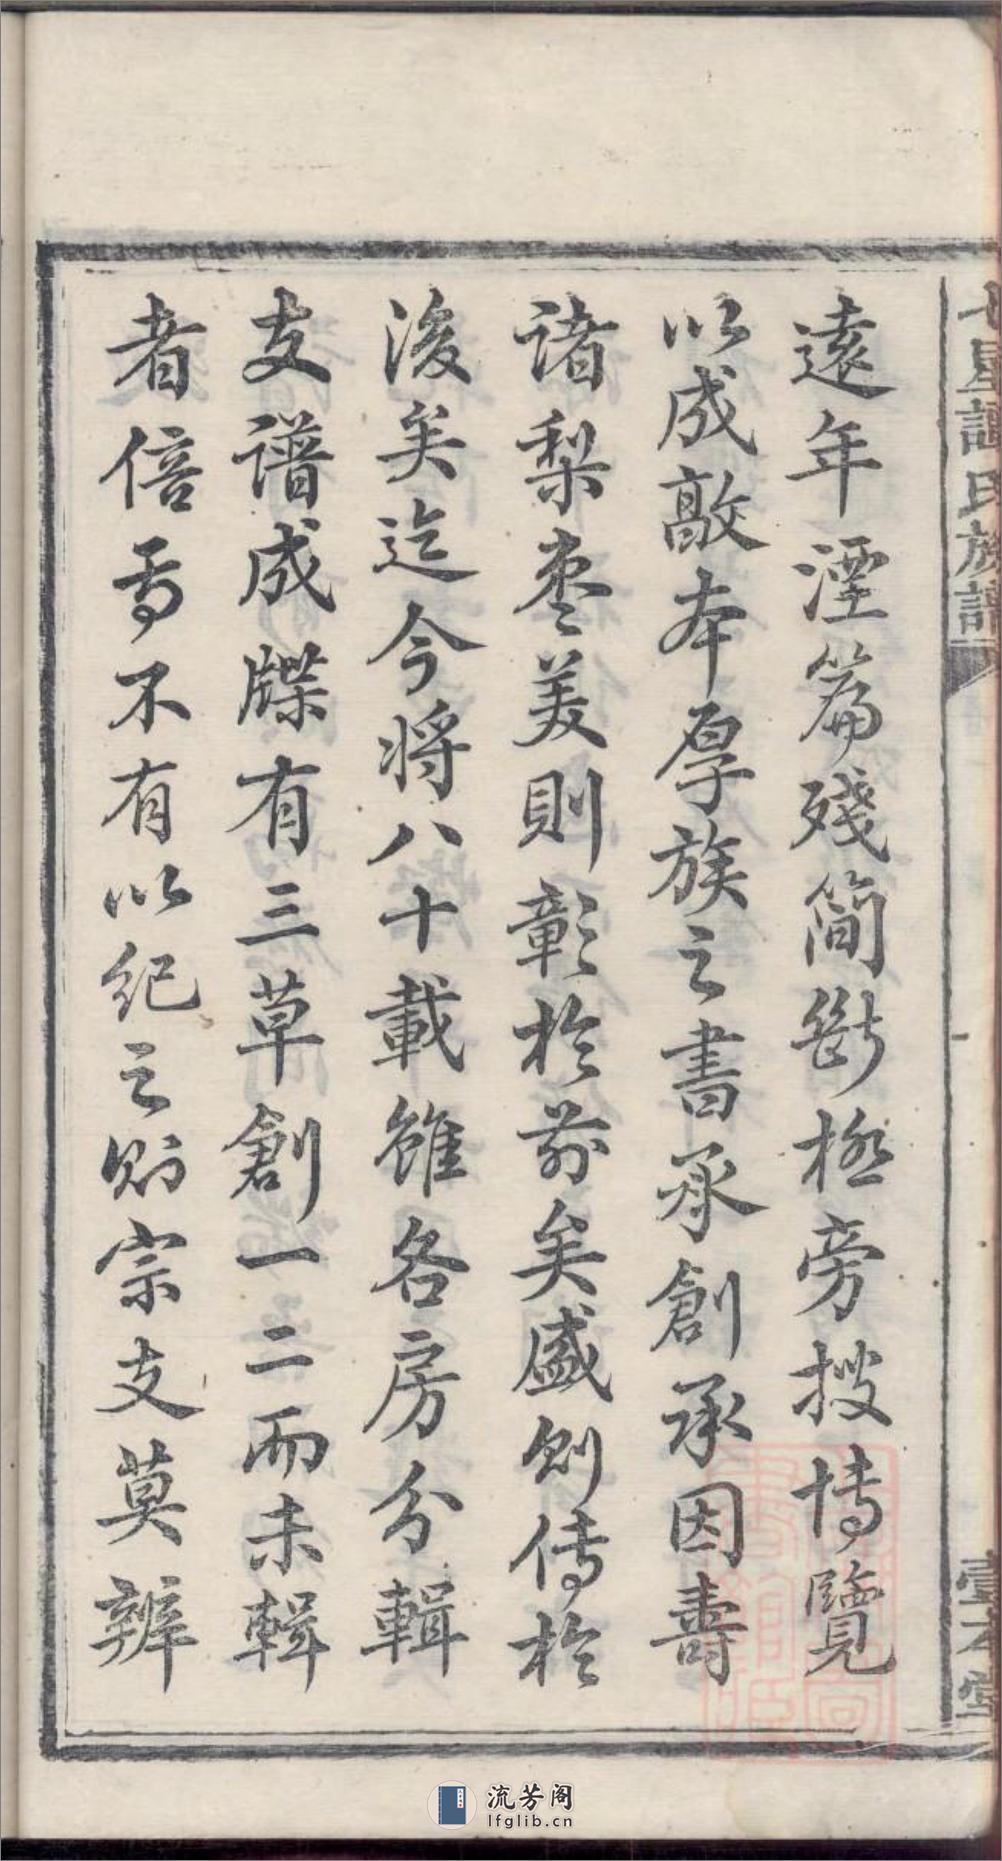 七星譚氏族譜
壹本堂
遠年湮篇殘簡斷極旁搜博覽
以成敵本厚族之書承創承因壽
諸梨枣美則彰於前矣盛則傳於
後矣迄今將八十載雖各房分輯
支譜成牒有三草創一二而未輯
者倍焉不有以紀之則宗支莫辨
流芳阁
lfglib.cn